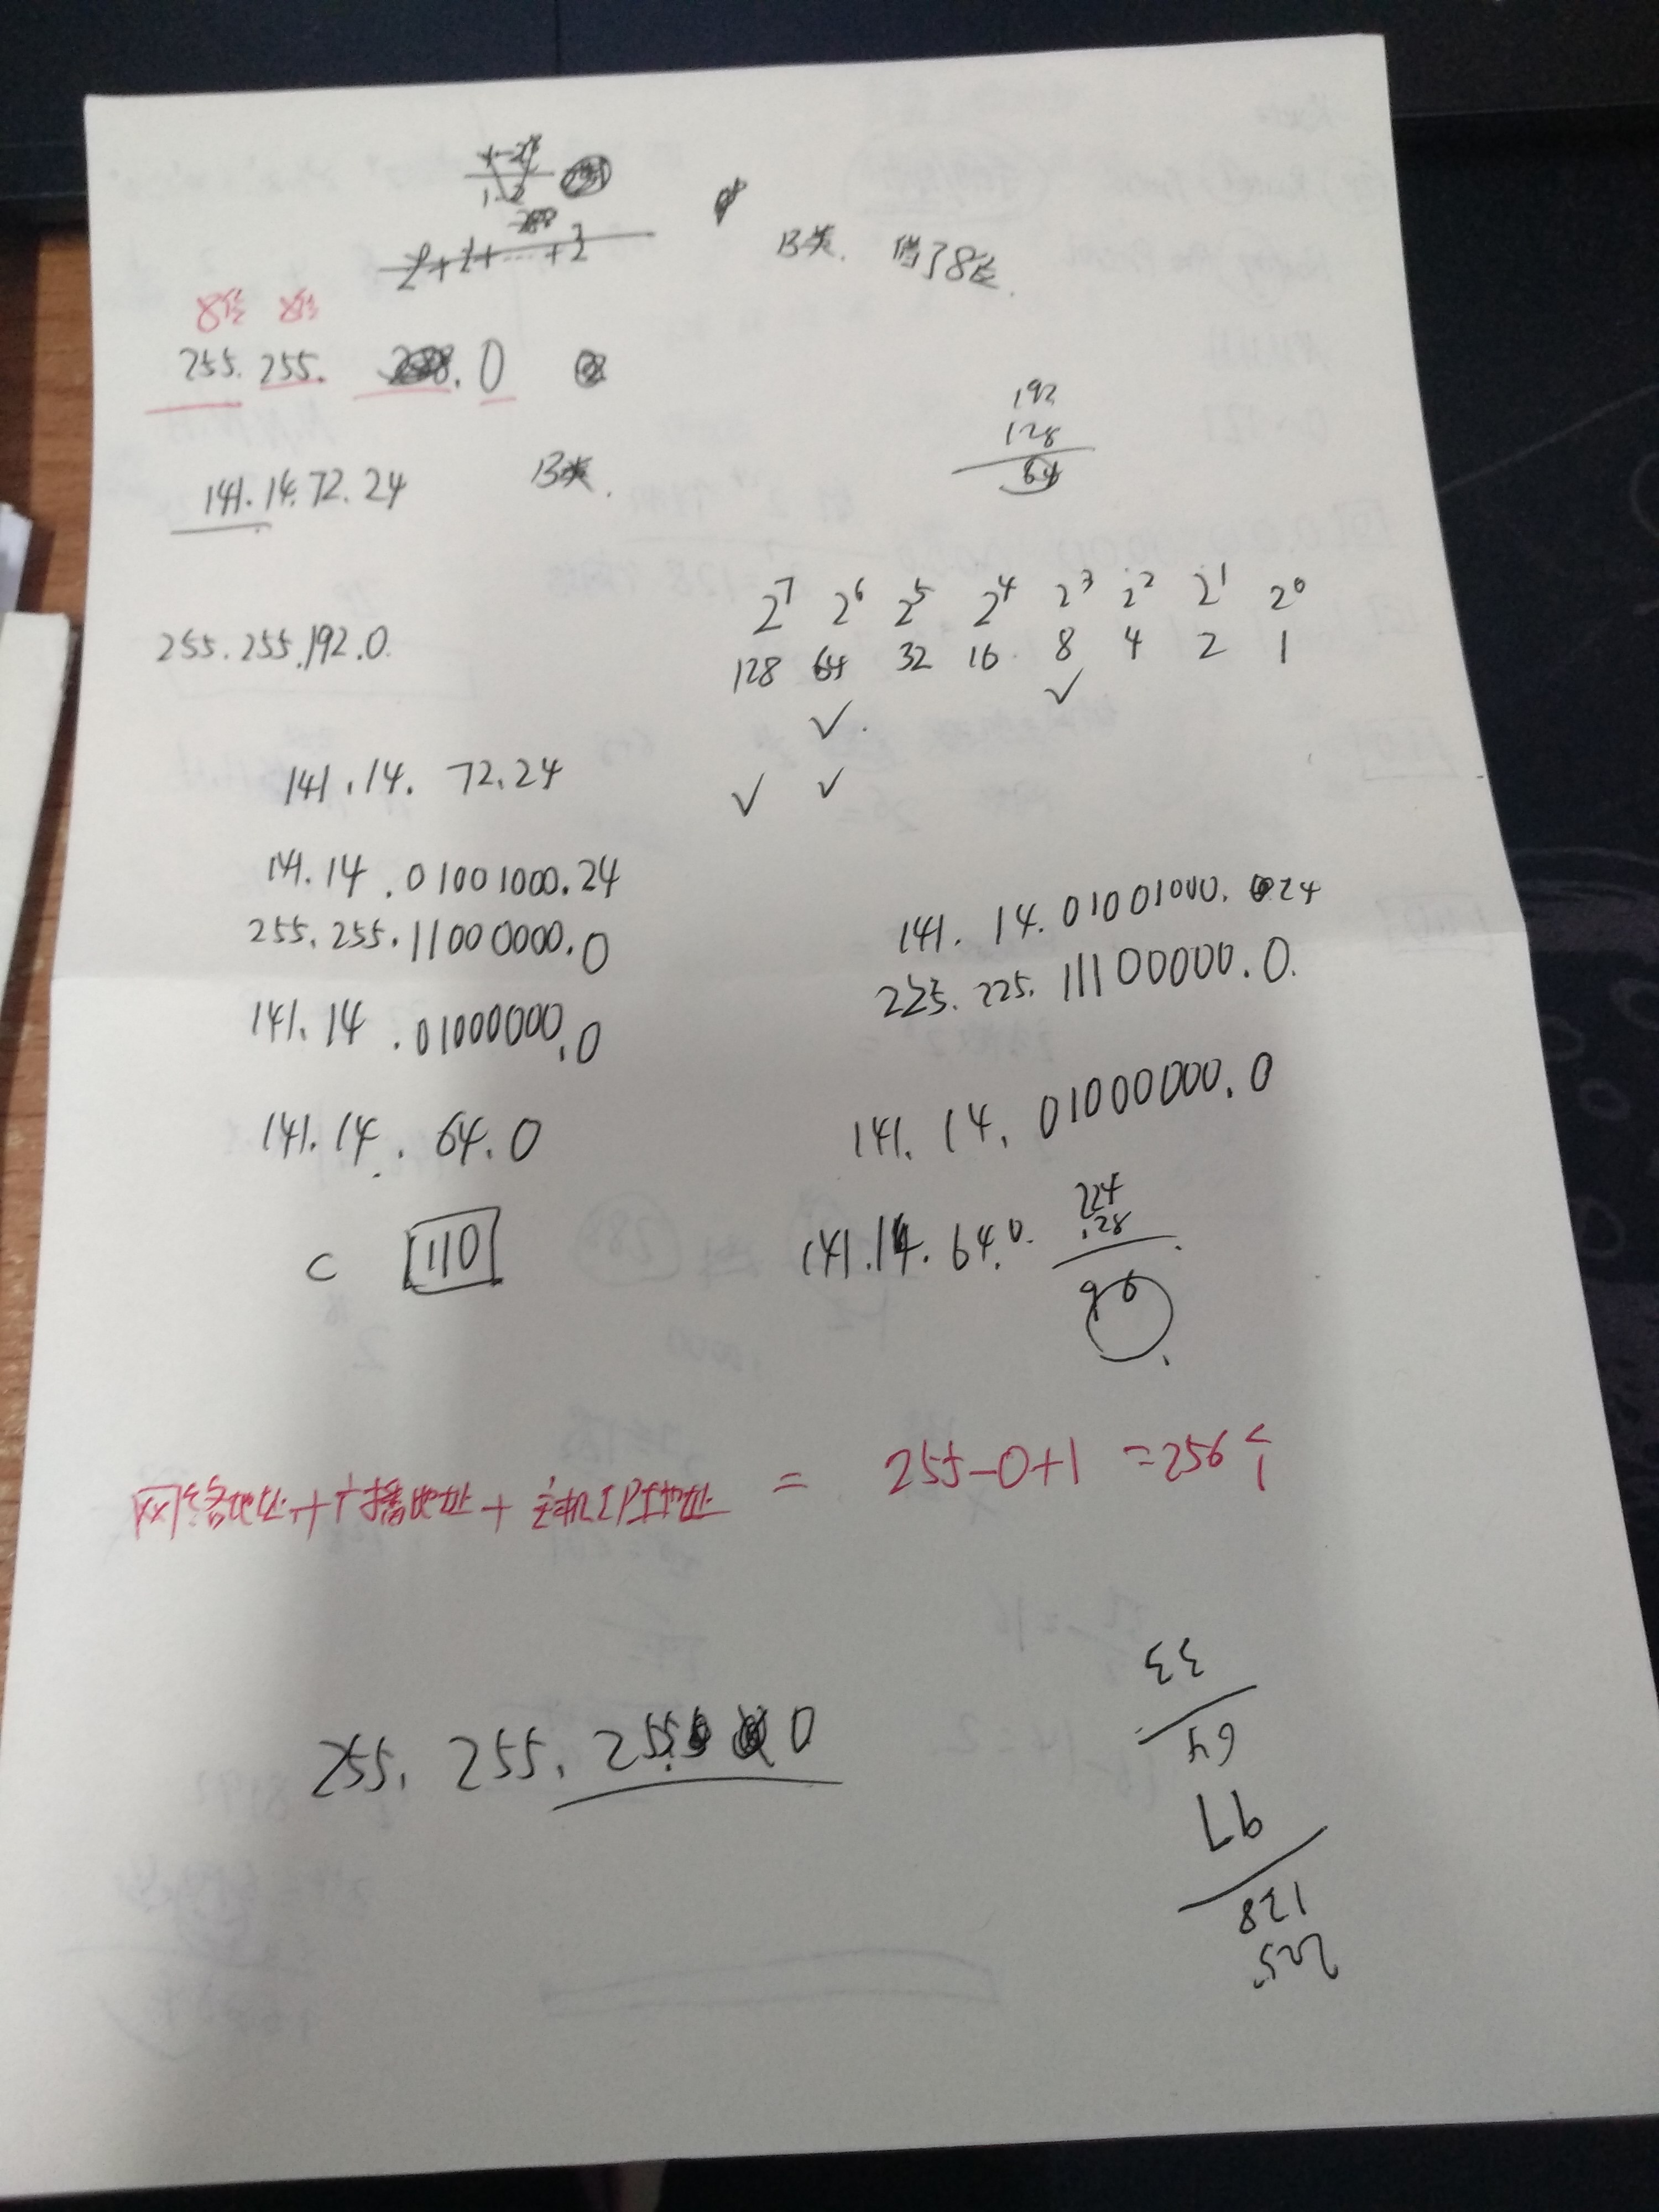 B类. 借了8位.
8位 8位
255. 255. .0
192
128
64
141.14.72.24 B类.
2⁷ 2⁶ 2⁵ 2⁴ 2³ 2² 2¹ 2⁰
255.255.192.0.
128 64 32 16 8 4 2 1
✓ ✓
141.14. 72.24 ✓ ✓
141.14.01001000.24
255.255.11000000.0
141.14.01000000.0
141.14.64.0
141. 14.01001000. 24
225. 225. 11100000.0.
141. 14. 01000000.0
141.14.64.0.
224
128
96
C 110
网络地址+广播地址+主机IP地址 = 255-0+1 =256个
255. 255. 255. 0
225
128
97
64
33